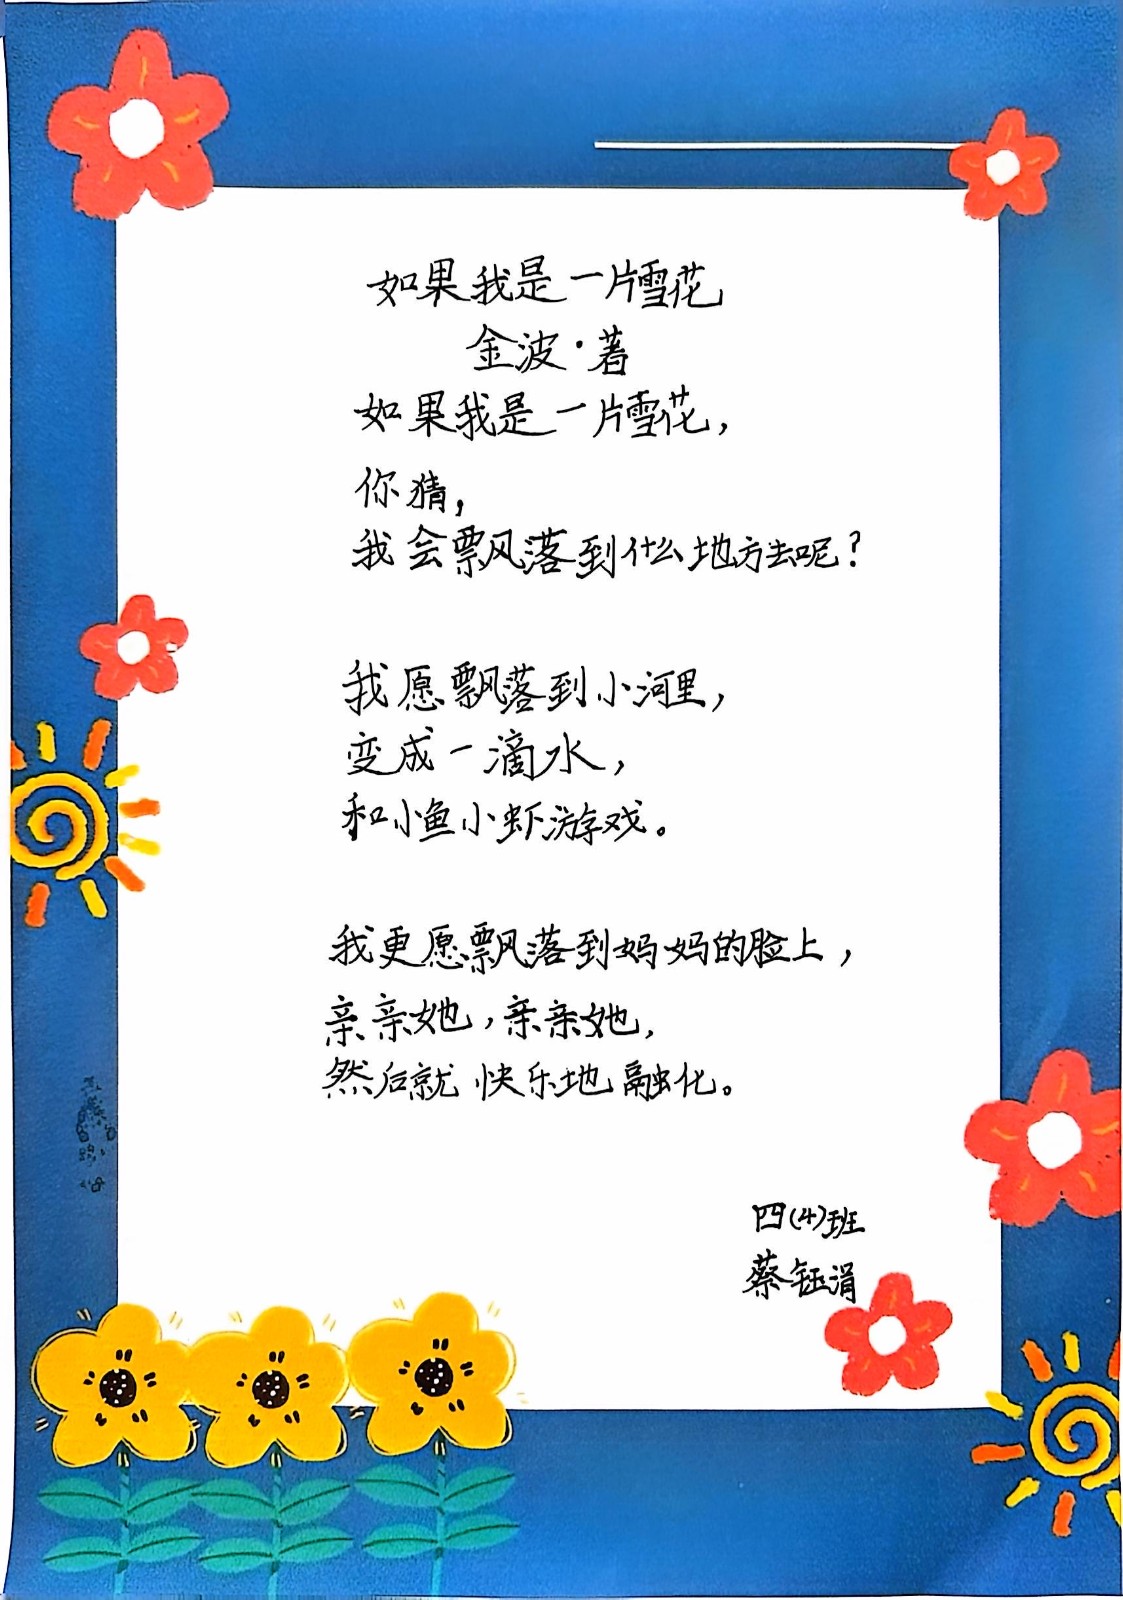 如果我是一片雪花
金波·著
如果我是一片雪花，
你猜，
我会飘落到什么地方去呢？
我愿飘落到小河里，
变成一滴水，
和小鱼小虾游戏。
我更愿飘落到妈妈的脸上，
亲亲她，亲亲她，
然后就快乐地融化。
四(4)班
蔡钰涓